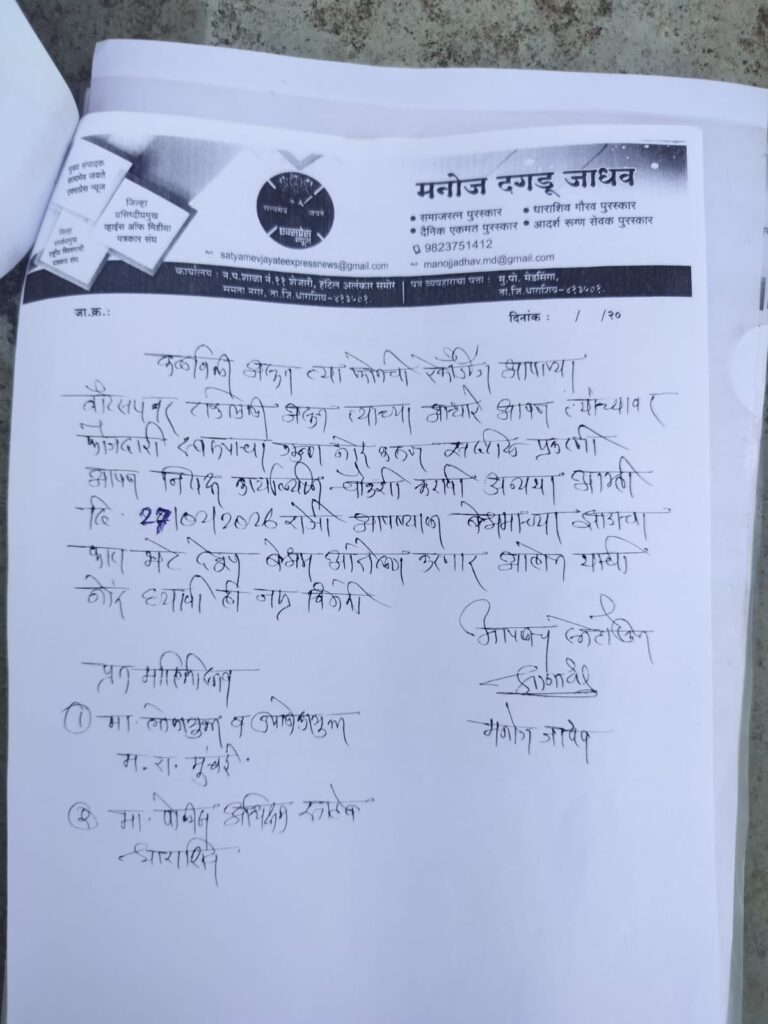 मुख्य संपादक
सत्यमेव जयते
एक्सप्रेस न्यूज
जिल्हा
प्रसिध्दीप्रमुख
व्हाईस ऑफ मिडीया
पत्रकार संघ
जिल्हा
पत्रकार संघ
सत्यमेव जयते
एक्सप्रेस
न्यूज
satyamevjayateexpressnews@gmail.com
मनोज दगडू जाधव
• समाजरत्न पुरस्कार • धाराशिव गौरव पुरस्कार
• दैनिक एकमत पुरस्कार • आदर्श रूग्ण सेवक पुरस्कार
9823751412
manojjadhav.md@gmail.com
कार्यालय : न.प.शाळा नं.११ शेजारी, हॉटेल अलंकार समोर
समता नगर, ता.जि.धाराशिव-४१३५०१.
पत्र व्यवहाराचा पत्ता : मु.पो. मेडसिंगा,
ता.जि.धाराशिव-४१३५०१.
जा.क्र.:
दिनांक : / /२०
कळविली असून त्या फोनची रेकॉर्डींग आपल्या
व्हॉटसपवर टाकलेली असून त्याच्या आधारे आपण त्यांच्यावर
फौजदारी स्वरूपाचा गुन्हा नोंद करून प्रकरणी
आपण चौकशी करावी अन्यथा आम्ही
दि. 27/02/2026 रोजी आपणास बेशरमाच्या झाडाचा
भेट देऊन आंदोलन करणार आहोत याची
नोंद घ्यावी ही नम्र विनंती
आपला
मनोज जाधव
प्रत माहितीस्तव
① मा. लोकायुक्त व उपलोकायुक्त
म.रा. मुंबई.
② मा. पोलीस अधिक्षक
धाराशिव